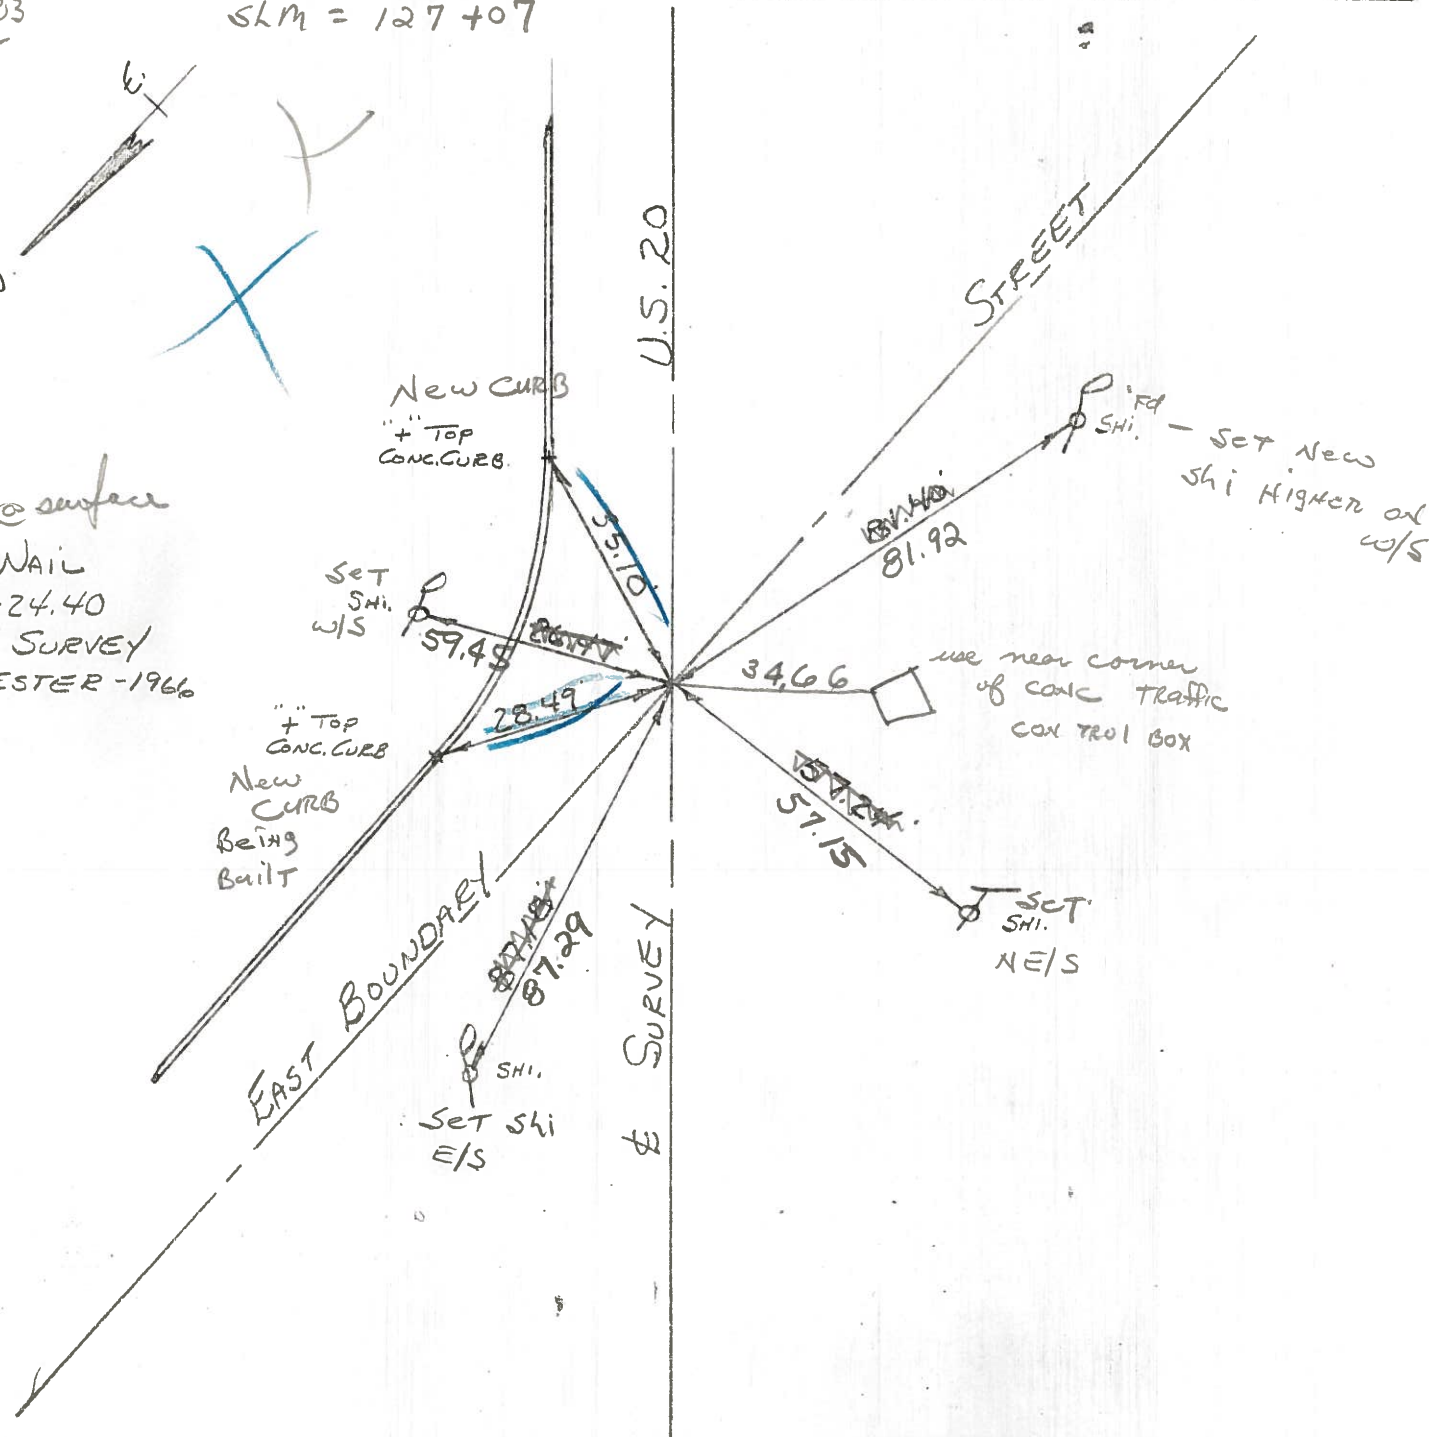 03
SLM = 127+07
E.
U.S. 20
STREET
New CURB
"+" TOP
CONC. CURB.
35.10
Fd
SHI. - SET New
Shi HigHER on
W/S
81.92
@ surface
NAIL
24.40
SURVEY
ESTER - 1966
SeT
SHI.
W/S
59.45
34.66
use near corner
of conc Traffic
conTrol Box
28.49
"+" TOP
CONC. CURB
New
CURB
Being
BuilT
57.24
57.15
SeT
SHI.
NE/S
EAST BOUNDARY
87.18
87.29
SHI.
SeT Shi
E/S
℄ SURVEY